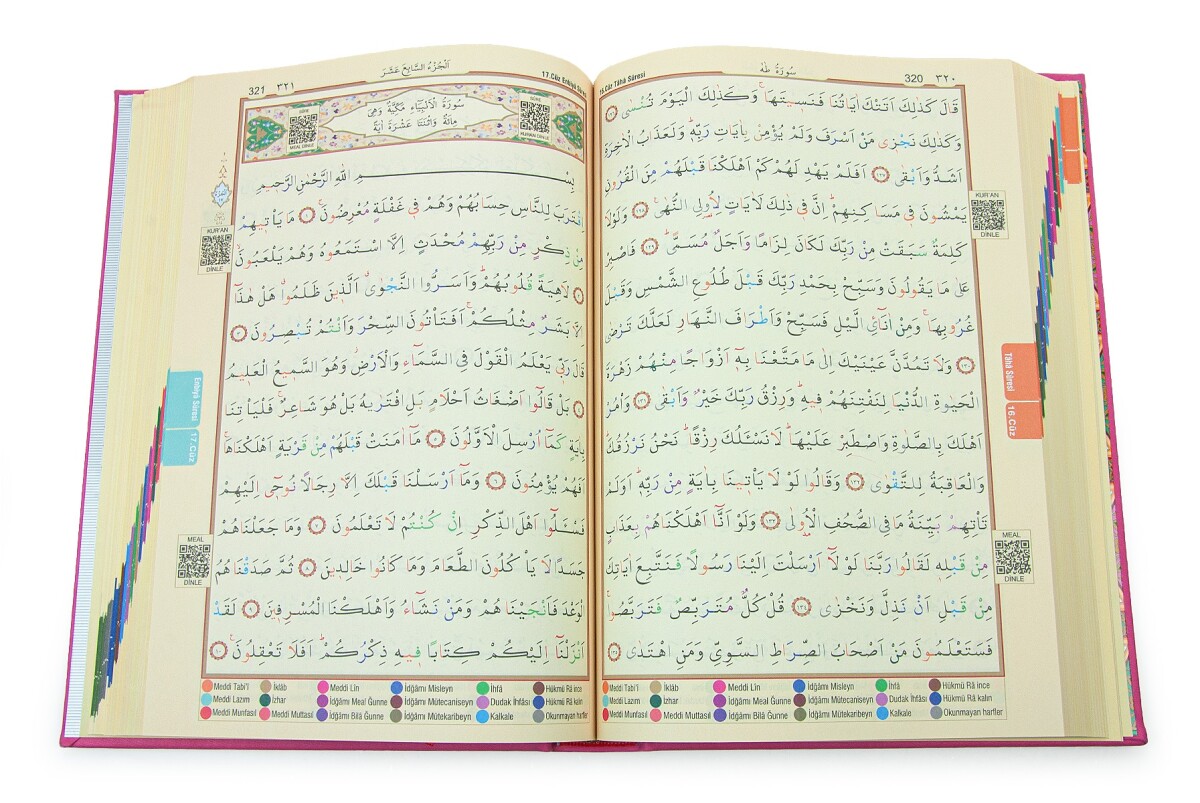 سُورَةُ طٰهٰ
320 ٣٢٠
16.Cüz Tâhâ Sûresi
قَالَ كَذٰلِكَ اَتَتْكَ اٰيَاتُنَا فَنَسٖيتَهَاۚ وَكَذٰلِكَ الْيَوْمَ تُنْسٰى ﴿١٢٦﴾
وَكَذٰلِكَ نَجْزٖى مَنْ اَسْرَفَ وَلَمْ يُؤْمِنْ بِاٰيَاتِ رَبِّهٖۜ وَلَعَذَابُ الْاٰخِرَةِ
اَشَدُّ وَاَبْقٰى ﴿١٢٧﴾ اَفَلَمْ يَهْدِ لَهُمْ كَمْ اَهْلَكْنَا قَبْلَهُمْ مِنَ الْقُرُونِ
يَمْشُونَ فٖى مَسَاكِنِهِمْۜ اِنَّ فٖى ذٰلِكَ لَاٰيَاتٍ لِاُو۬لِى النُّهٰى ﴿١٢٨﴾ وَلَوْلَا
كَلِمَةٌ سَبَقَتْ مِنْ رَبِّكَ لَكَانَ لِزَامًا وَاَجَلٌ مُسَمًّىۜ ﴿١٢٩﴾ فَاصْبِرْ
عَلٰى مَا يَقُولُونَ وَسَبِّحْ بِحَمْدِ رَبِّكَ قَبْلَ طُلُوعِ الشَّمْسِ وَقَبْلَ
غُرُوبِهَاۚ وَمِنْ اٰنَآئِ الَّيْلِ فَسَبِّحْ وَاَطْرَافَ النَّهَارِ لَعَلَّكَ تَرْضٰى
﴿١٣٠﴾ وَلَا تَمُدَّنَّ عَيْنَيْكَ اِلٰى مَا مَتَّعْنَا بِهٖٓ اَزْوَاجًا مِنْهُمْ زَهْرَةَ
الْحَيٰوةِ الدُّنْيَا لِنَفْتِنَهُمْ فٖيهِۜ وَرِزْقُ رَبِّكَ خَيْرٌ وَاَبْقٰى ﴿١٣١﴾ وَأْمُرْ
اَهْلَكَ بِالصَّلٰوةِ وَاصْطَبِرْ عَلَيْهَاۜ لَا نَسْـَٔلُكَ رِزْقًاۜ نَحْنُ نَرْزُقُكَۜ
وَالْعَاقِبَةُ لِلتَّقْوٰى ﴿١٣٢﴾ وَقَالُوا لَوْ لَا يَأْتٖينَا بِاٰيَةٍ مِنْ رَبِّهٖۜ اَوَلَمْ
تَأْتِهِمْ بَيِّنَةُ مَا فِى الصُّحُفِ الْاُو۫لٰى ﴿١٣٣﴾ وَلَوْ اَنَّٓا اَهْلَكْنَاهُمْ بِعَذَابٍ
مِنْ قَبْلِهٖ لَقَالُوا رَبَّنَا لَوْ لَٓا اَرْسَلْتَ اِلَيْنَا رَسُولًا فَنَتَّبِعَ اٰيَاتِكَ
مِنْ قَبْلِ اَنْ نَذِلَّ وَنَخْزٰى ﴿١٣٤﴾ قُلْ كُلٌّ مُتَرَبِّصٌ فَتَرَبَّصُواۚ
فَسَتَعْلَمُونَ مَنْ اَصْحَابُ الصِّرَاطِ السَّوِىِّ وَمَنِ اهْتَدٰى ﴿١٣٥﴾
KUR'AN
DİNLE
MEAL
DİNLE
Tâhâ Sûresi
16.Cüz
Meddi Tabi'î İklâb Meddi Lîn İdğâmı Misleyn İhfâ Hükmü Râ ince
Meddi Lazım İzhar İdğâmı Meal Ğunne İdğâmı Mütecaniseyn Dudak İhfâsı Hükmü Râ kalın
Meddi Munfasıl Meddi Muttasıl İdğâmı Bilâ Ğunne İdğâmı Mütekaribeyn Kalkale Okunmayan harfler
اَلْجُزْءُ السَّابِعَ عَشَرَ
321 ٣٢١
17.Cüz Enbiyâ Sûresi
سُورَةُ الْاَنْبِيَاءِ مَكِّيَّةٌ وَهِىَ
مِائَةٌ وَاثْنَتَا عَشْرَةَ اٰيَةً
SÛRE
MEAL DİNLE
SÛRE
KUR'AN DİNLE
بِسْمِ اللّٰهِ الرَّحْمٰنِ الرَّحٖيمِ
اِقْتَرَبَ لِلنَّاسِ حِسَابُهُمْ وَهُمْ فٖى غَفْلَةٍ مُعْرِضُونَۚ ﴿١﴾ مَا يَأْتٖيهِمْ
مِنْ ذِكْرٍ مِنْ رَبِّهِمْ مُحْدَثٍ اِلَّا اسْتَمَعُوهُ وَهُمْ يَلْعَبُونَۙ
﴿٢﴾ لَاهِيَةً قُلُوبُهُمْۜ وَاَسَرُّوا النَّجْوٰىۗ اَلَّذٖينَ ظَلَمُواۗ هَلْ هٰذَٓا
اِلَّا بَشَرٌ مِثْلُكُمْۚ اَفَتَأْتُونَ السِّحْرَ وَاَنْتُمْ تُبْصِرُونَ ﴿٣﴾
قَالَ رَبّٖى يَعْلَمُ الْقَوْلَ فِى السَّمَٓاءِ وَالْاَرْضِۘ وَهُوَ السَّمٖيعُ الْعَلٖيمُ
﴿٤﴾ بَلْ قَالُٓوا اَضْغَاثُ اَحْلَامٍ بَلِ افْتَرٰيهُ بَلْ هُوَ شَاعِرٌۚ فَلْيَأْتِنَا
بِاٰيَةٍ كَمَٓا اُرْسِلَ الْاَوَّلُونَ ﴿٥﴾ مَٓا اٰمَنَتْ قَبْلَهُمْ مِنْ قَرْيَةٍ اَهْلَكْنَاهَاۚ
اَفَهُمْ يُؤْمِنُونَ ﴿٦﴾ وَمَٓا اَرْسَلْنَا قَبْلَكَ اِلَّا رِجَالًا نُوحٖٓى اِلَيْهِمْ
فَسْـَٔلُٓوا اَهْلَ الذِّكْرِ اِنْ كُنْتُمْ لَا تَعْلَمُونَ ﴿٧﴾ وَمَا جَعَلْنَاهُمْ
جَسَدًا لَا يَأْكُلُونَ الطَّعَامَ وَمَا كَانُوا خَالِدٖينَ ﴿٨﴾ ثُمَّ صَدَقْنَاهُمُ
الْوَعْدَ فَاَنْجَيْنَاهُمْ وَمَنْ نَشَٓاءُ وَاَهْلَكْنَا الْمُسْرِفٖينَ ﴿٩﴾ لَقَدْ
اَنْزَلْنَٓا اِلَيْكُمْ كِتَابًا فٖيهِ ذِكْرُكُمْۜ اَفَلَا تَعْقِلُونَ۟ ﴿١٠﴾
KUR'AN
DİNLE
MEAL
DİNLE
Enbiyâ Sûresi
17.Cüz
Meddi Tabi'î İklâb Meddi Lîn İdğâmı Misleyn İhfâ Hükmü Râ ince
Meddi Lazım İzhar İdğâmı Meal Ğunne İdğâmı Mütecaniseyn Dudak İhfâsı Hükmü Râ kalın
Meddi Munfasıl Meddi Muttasıl İdğâmı Bilâ Ğunne İdğâmı Mütekaribeyn Kalkale Okunmayan harfler